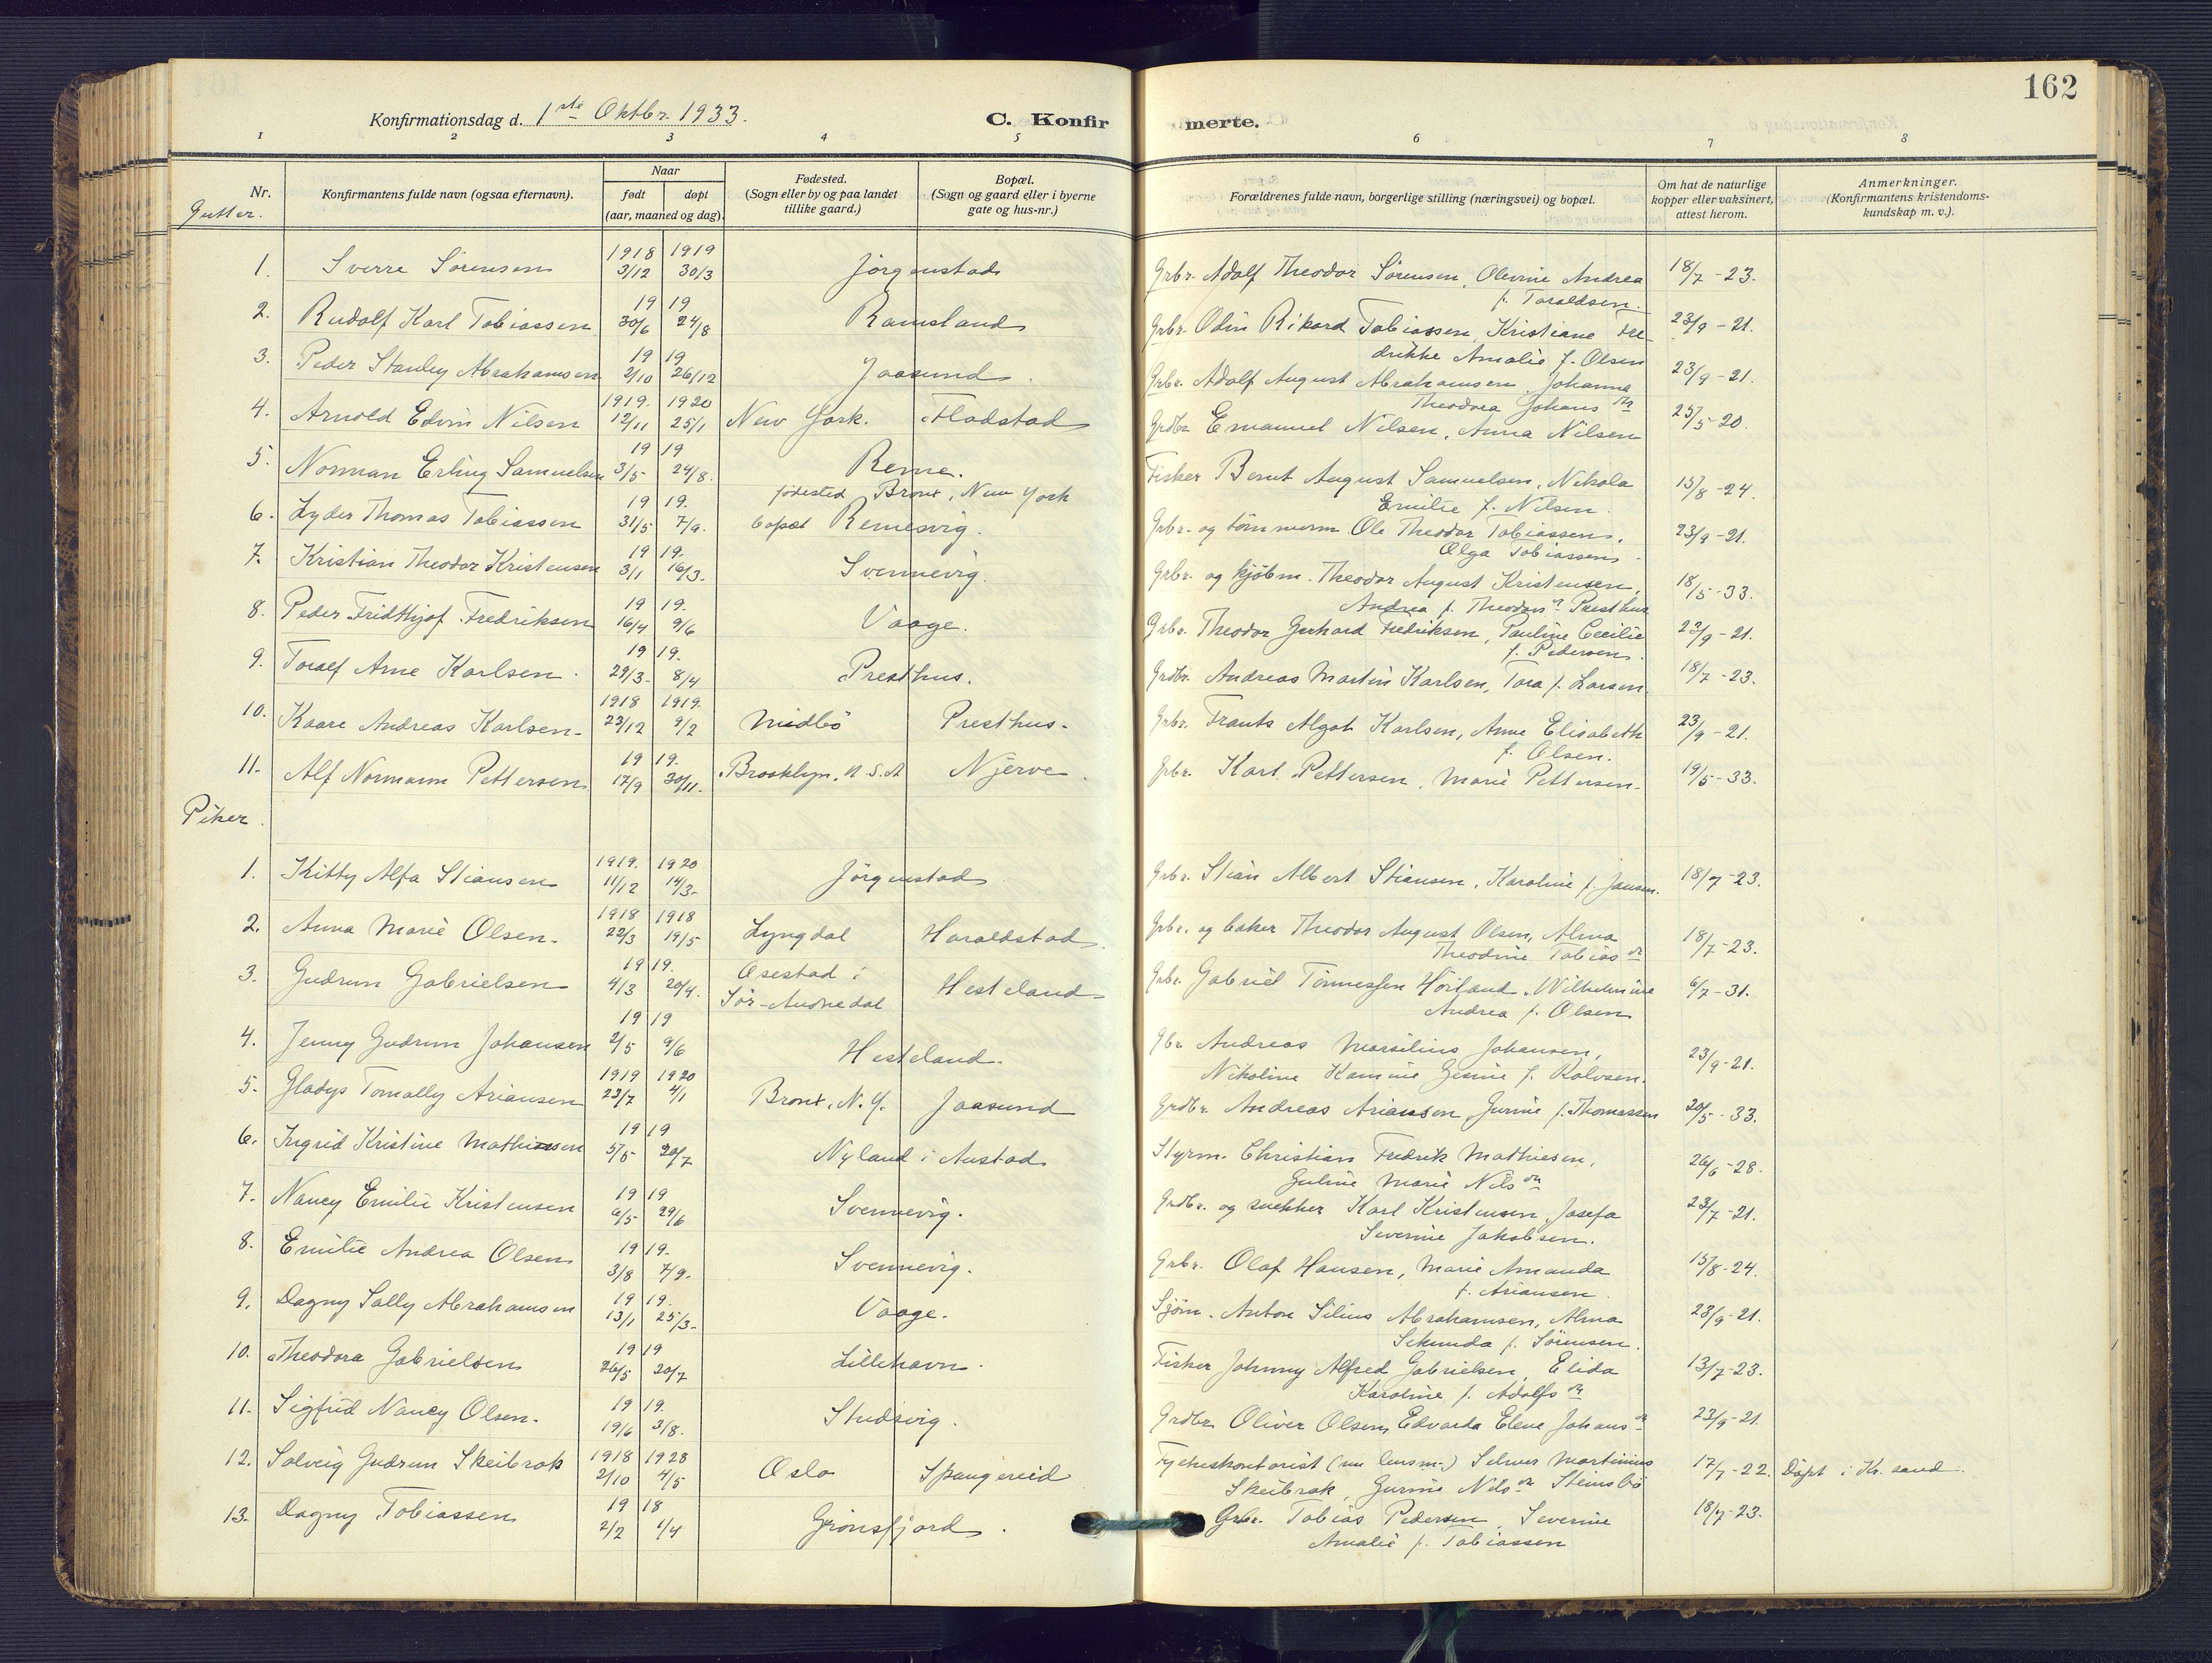 162
Konfirmationsdag d. 1ste Oktbr. 1933. C. Konfirmerte.
1 2 3 4 5 6 7 8
Nr. Konfirmantens fulde navn (ogsaa efternavn). Naar født døpt (aar, maaned og dag). Fødested. (Sogn eller by og paa landet tillike gaard.) Bopæl. (Sogn og gaard eller i byerne gate og hus-nr.) Forældrenes fulde navn, borgerlige stilling (næringsvei) og bopæl. Om hat de naturlige kopper eller vaksinert, attest herom. Anmerkninger. (Konfirmantens kristendoms-kundskap m. v.).
Gutter.
1. Sverre Sørensen 1918 3/12 1919 30/3 Jörgenstad Grbr. Adolf Theodor Sørensen, Olevine Andrea 18/7-23.
f. Toraldsen.
2. Rudolf Karl Tobiassen 19 30/6 19 24/8 Ramsland Grbr. Odin Rikard Tobiassen, Kristiane Fre- 23/9-21.
drikke Amalie f. Olsen
3. Peder Stanley Abrahamsen 19 2/10 19 26/12 Jaasund Grbr. Adolf August Abrahamsen, Johanna 23/9-21.
Theodora Johans dr
4. Arnold Edvin Nilsen 1919. 12/11 1920 25/1 New York. Fladstad Grdbr. Emanuel Nilsen, Anna Nilsen 25/5-20.
5. Norman Erling Samuelsen 19 3/5 19 24/8. Reme. Fisker Bernt August Samuelsen, Nikola 15/8-24.
Emilie f. Nilsen.
6. Lyder Thomas Tobiassen 19 31/5 19. 7/9. fødested Bronx, New York bopæl Remesvig. Grbr. og tömmerm Ole Theodor Tobiassen, 23/9-21.
Olga Tobiassen.
7. Kristian Theodor Kristensen 19 3/1 19. 16/3. Svennevig. Grbr. og kjöbm. Theodor August Kristensen, 18/5-33.
Andrea f. Theodors dr Presthus
8. Peder Fridthjof Fredriksen 19 16/4 19. 9/6 Vaage. Grbr. Theodor Gerhard Fredriksen, Pauline Cecilie 23/9-21.
f. Pedersen.
9. Toralf Arne Karlsen. 19 29/3- 19. 8/4 Presthus. Grdbr. Andreas Martin Karlsen, Tora f. Larsen. 18/7-23.
10. Kaare Andreas Karlsen. 1918 23/12 1919. 9/2 Midbö Presthus. Grbr. Frants Algot Karlsen, Anne Elisabeth 23/9-21.
f. Olsen.
11. Alf Normann Pettersen 19 17/9 19. 30/11. Brooklyn, U.S.A Njerve. Grbr. Karl Pettersen, Marie Pettersen. 19/5-33.
Piker.
1. Kitty Alfa Stiansen 1919. 11/12 1920 14/3- Jörgenstad Grbr. Stian Albert Stiansen, Karoline f. Jansen. 18/7-23.
2. Anna Marie Olsen. 1918 22/3 1918 19/5 Lyngdal Haraldstad. Grbr. og baker Theodor August Olsen, Alma 18/7-23.
Theodine Tobias dr
3. Gudrun Gabrielsen 19 4/3 19. 20/4. Osestad i Sør-Audnedal Hesteland Grbr. Gabriel Tönnessen Höiland, Wilhelmine 6/7-31.
Andrea f. Olsen
4. Jenny Gudrun Johansen 19 2/5 19 9/6 Hesteland. Gbr. Andreas Marsilius Johansen, 23/9-21.
Nikoline Kamine Gesine f. Rolvsen.
5. Gladys Tomally Ariansen 1919 23/7 1920 4/1 Bronx, N.Y. Jaasund Grdbr. Andreas Ariansen, Gurine f. Thomassen 20/5-33.
6. Ingrid Kristine Mathiassen 19 5/5 19 20/7 Nyland i Austad Styrm. Christian Fredrik Mathiesen, 26/6-28.
Guline Marie Nils dr
7. Nancy Emilie Kristensen 19 6/5 19 29/6 Svennevig. Grdbr. og snekker Karl Kristensen, Josefa 23/7-21.
Severine Jakobsen.
8. Emilie Andrea Olsen 19 3/8 19. 7/9. Svennevig. Grbr. Olaf Hansen, Marie Amanda 15/8-24.
f. Ariansen.
9. Dagny Sally Abrahamsen 19 13/1 19. 25/3- Vaage. Sjöm. Anton Silius Abrahamsen, Alma 23/9-21.
Sekunda f. Sörensen.
10. Theodora Gabrielsen 19 26/5 19 20/7 Lillehavn. Fisker Johnny Alfred Gabrielsen, Elida 13/7-23.
Karoline f. Adolfs dr
11. Sigfrid Nancy Olsen. 19 19/6 19. 3/8. Studsvig. Grdbr. Oliver Olsen, Edvarda Elene Johans dr 23/9-21.
12. Solveig Gudrun Skeibrok 1918 2/10 1928 4/5 Oslo Spangereid Fylkeskontorist (nu lensm.) Selmer Martinius 17/7-22. Döpt i Kr.sand.
Skeibrok, Gurine Nils dr Steinsbö
13. Dagny Tobiassen 19 2/2 18 1/4 Grönsfjord. Grbr. Tobias Pedersen, Severine 18/7-23.
Amalie f. Tobiassen